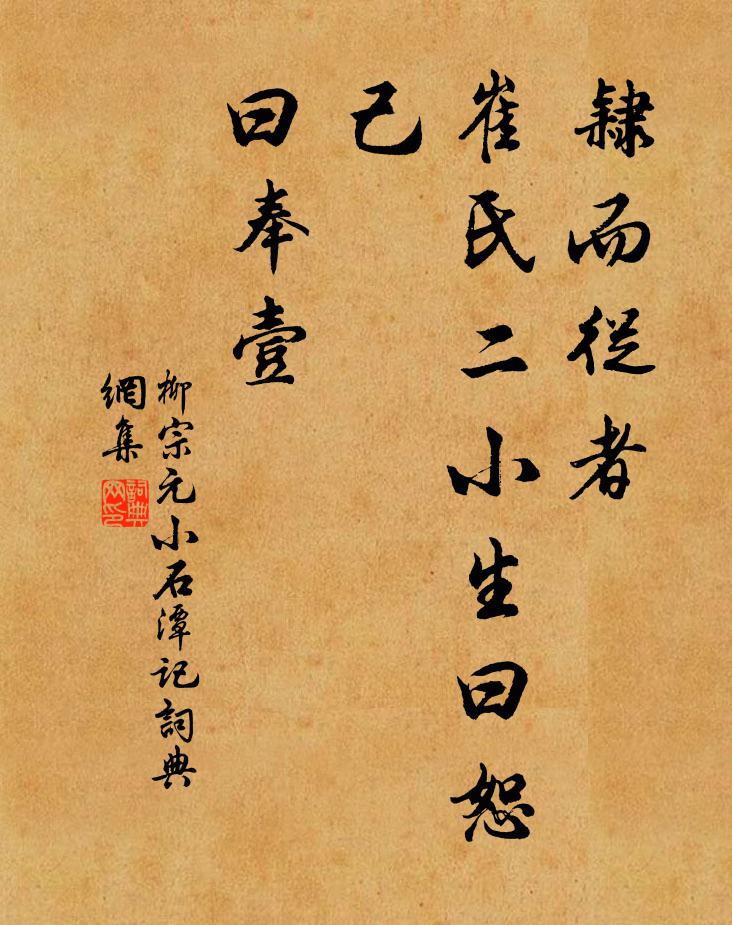 隸而從者
崔氏二小生曰恕
己
曰奉壹
柳宗元小石潭記詞典
網集
詞典
網印